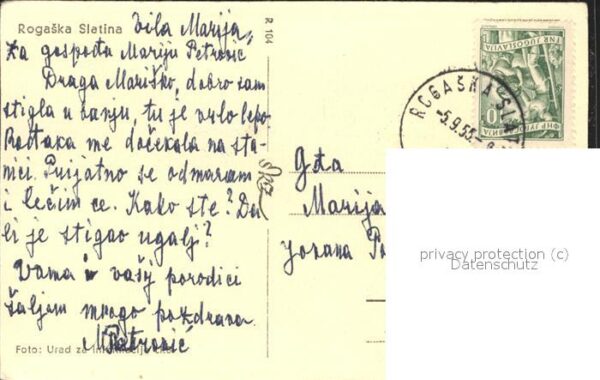 Rogaška Slatina Vila Marija,
Za gospođa Mariju Petrović
Draga Mariško, dobro sam
stigla u banju, tu je vrlo lepo.
Rastaka me dočekala na sta-
nici. Prijatno se odmaram
i lečim ce. Kako ste? Da
li je stigao ugalj?
Vama i vašij porodici
šaljem mnogo pozdrava
M Petrović
Foto: Urad za
R 104
FNR JUGOSLAVIJA
ROGAŠKA SLAT
-5.9.55-
10
Gđa
Marija
Jovana
privacy protection (c)
Datenschutz